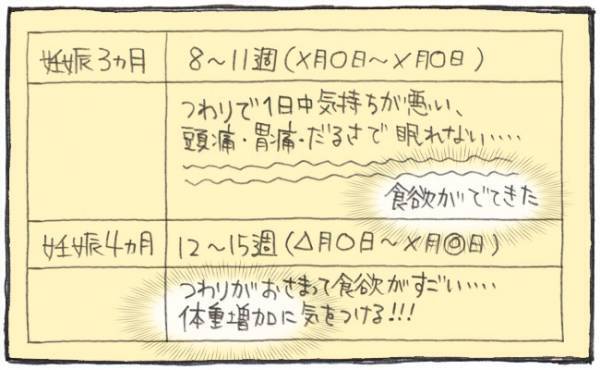 妊娠3ヵ月 8〜11週(×月○日〜×月○日)
つわりで1日中気持ちが悪い、
頭痛・胃痛・だるさで眠れない‥‥
食欲がでてきた
妊娠4ヵ月 12〜15週(△月○日〜×月◎日)
つわりがおさまって食欲がすごい‥‥
体重増加に気をつける!!!